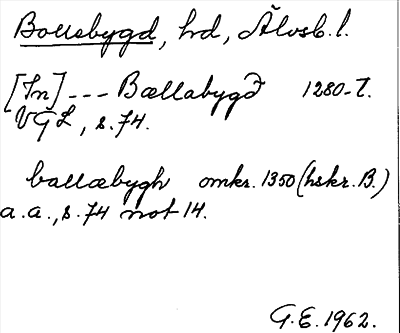 Bollebygd, hd, Älvsb. l.
[In] --- Bællabygð 1280-t.
VGL, s. 74.
ballæbygh omkr. 1350 (hskr. B.)
a. a., s. 74 not 14.
G.E. 1962.